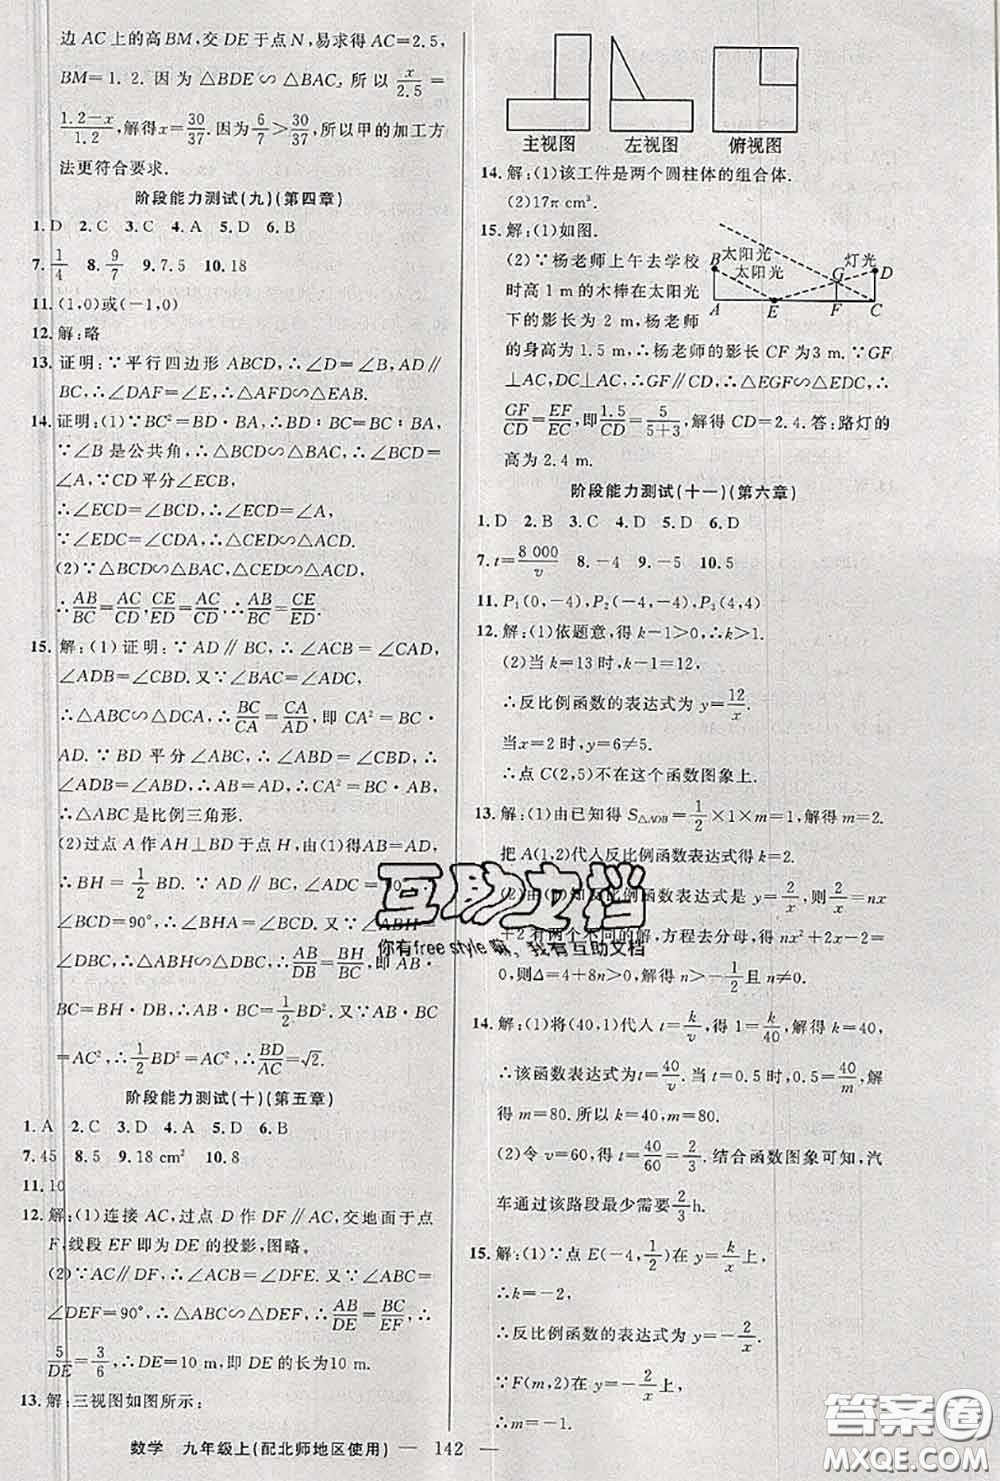 边 AC 上的高 BM,交 DE 于点 N,易求得 AC=2.5,
BM=1.2. 因为 △BDE∽△BAC, 所以 x/2.5=
(1.2-x)/1.2,解得x=30/37. 因为 6/7>30/37,所以甲的加工方
法更符合要求.
阶段能力测试(九)(第四章)
1.D 2.C 3.C 4.A 5.D 6.B
7.1/4 8.9/7 9.7.5 10.18
11.(1,0)或(-1,0)
12.解:略
13.证明:∵平行四边形 ABCD,∴∠D=∠B,AD∥
BC,∴∠DAF=∠E,∴△DAF∽△EAB.
14.证明:(1)∵BC²=BD·BA,∴BD∶BC=BC∶BA,
∵∠B 是公共角,∴△BCD∽△BAC,∴∠BCD=
∠A,∵CD 平分∠ECB,
∴∠ECD=∠BCD,∴∠ECD=∠A,
∵∠EDC=∠CDA,∴△CED∽△ACD.
(2)∵△BCD∽△BAC,△CED∽△ACD,
∴AB/BC=AC/CD,CE/ED=AC/CD,∴AB/BC=CE/ED.
15.解:(1)证明:∵AD∥BC,∴∠ACB=∠CAD,
∠ADB=∠CBD. 又∵∠BAC=∠ADC,
∴△ABC∽△DCA,∴BC/CA=CA/AD,即 CA²=BC·
AD. ∵ BD 平分∠ABC,∴∠ABD=∠CBD,∴
∠ABD=∠ADB,∴AB=AD,∴CA²=BC·AB,∴
△ABC是比例三角形.
(2)过点 A 作AH⊥BD于点H,由(1)得AB=AD,
∴BH=1/2BD. ∵ AD∥BC,∠ADC=90°,∴
∠BCD=90°,∴∠BHA=∠BCD. 又∵∠ABH
=∠DBC,∴△ABH∽△DBC,∴AB/DB=BH/BC,∴AB·
BC=BH·DB,∴AB·BC=1/2BD². 又∵AB·BC
=AC²,∴1/2BD²=AC²,∴BD/AC=√2.
阶段能力测试(十)(第五章)
1.A 2.C 3.D 4.A 5.D 6.B
7.45 8.5 9.18 cm² 10.8
11.10
12.解:(1)连接 AC,过点 D 作 DF∥AC,交地面于点
F,线段 EF 即为 DE 的投影,图略.
(2)∵AC∥DF,∴∠ACB=∠DFE. 又∵∠ABC=
∠DEF=90°,∴△ABC∽△DEF,∴AB/DE=BC/EF,∴
5/DE=3/6,∴DE=10 m,即 DE 的长为10 m.
13.解:三视图如图所示:
数学 九年级上(配北师地区使用) — 142 —
主视图 左视图 俯视图
14.解:(1)该工件是两个圆柱体的组合体.
(2)17π cm³.
15.解:(1)如图.
(2)∵杨老师上午去学校
时高 1 m的木棒在太阳光
下的影长为 2 m,杨老师
的身高为 1.5 m,∴杨老师的影长 CF 为3 m.∵GF
⊥AC,DC⊥AC,∴GF∥CD,∴△EGF∽△EDC,∴
GF/CD=EF/EC,即1.5/CD=5/(5+3),解得 CD=2.4. 答:路灯的
高为 2.4 m.
B 太阳光 太阳光 灯光 G D A E F C
阶段能力测试(十一)(第六章)
1.D 2.B 3.C 4.D 5.D 6.D
7.t=8 000/v 8.-4 9.-5 10.5
11.P₁(0,-4),P₂(-4,-4),P₃(4,4)
12.解:(1)依题意,得 k-1>0,∴k>1.
(2)当 k=13 时,k-1=12,
∴反比例函数的表达式为 y=12/x.
当x=2 时,y=6≠5.
∴点 C(2,5)不在这个函数图象上.
13.解:(1)由已知得 S△AOB=1/2×1×m=1,解得 m=2.
把 A(1,2)代入反比例函数表达式得 k=2.
(2)由(1)知反比例函数表达式是 y=2/x,则2/x=nx
+2 有两个不同的解,方程去分母,得 nx²+2x-2=
0,则Δ=4+8n>0,解得 n>-1/2且 n≠0.
14.解:(1)将(40,1)代入 t=k/v,得 1=k/40,解得 k=40,
∴该函数表达式为 t=40/v,当 t=0.5 时,0.5=40/m,解
得 m=80. 所以 k=40,m=80.
(2)令 v=60,得 t=40/60=2/3. 结合函数图象可知,汽
车通过该路段最少需要2/3h.
15.解:(1)∵点 E(-4,1/2)在 y=k/x上,
∴k=-2,
∴反比例函数的表达式为 y=-2/x.
∵F(m,2)在 y=-2/x上,
∴m=-1.
互助文档
你有free style嘛,我有互助文档
答案圈
MXQE.COM